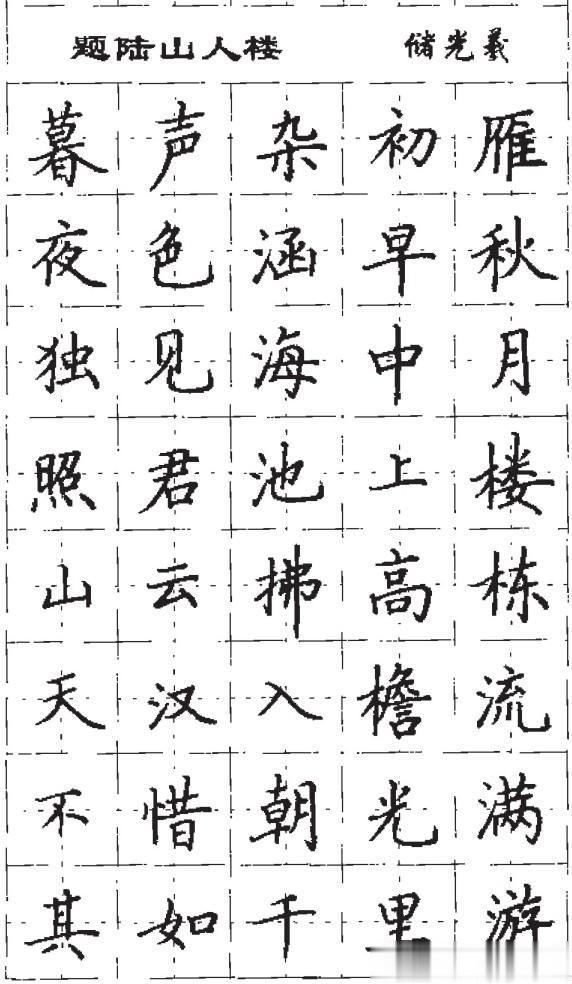 题陆山人楼 储光羲
暮声杂初雁
夜色涵早秋
独见海中月
照君池上楼
山云拂高栋
天汉入檐流
不惜朝光满
其如千里游